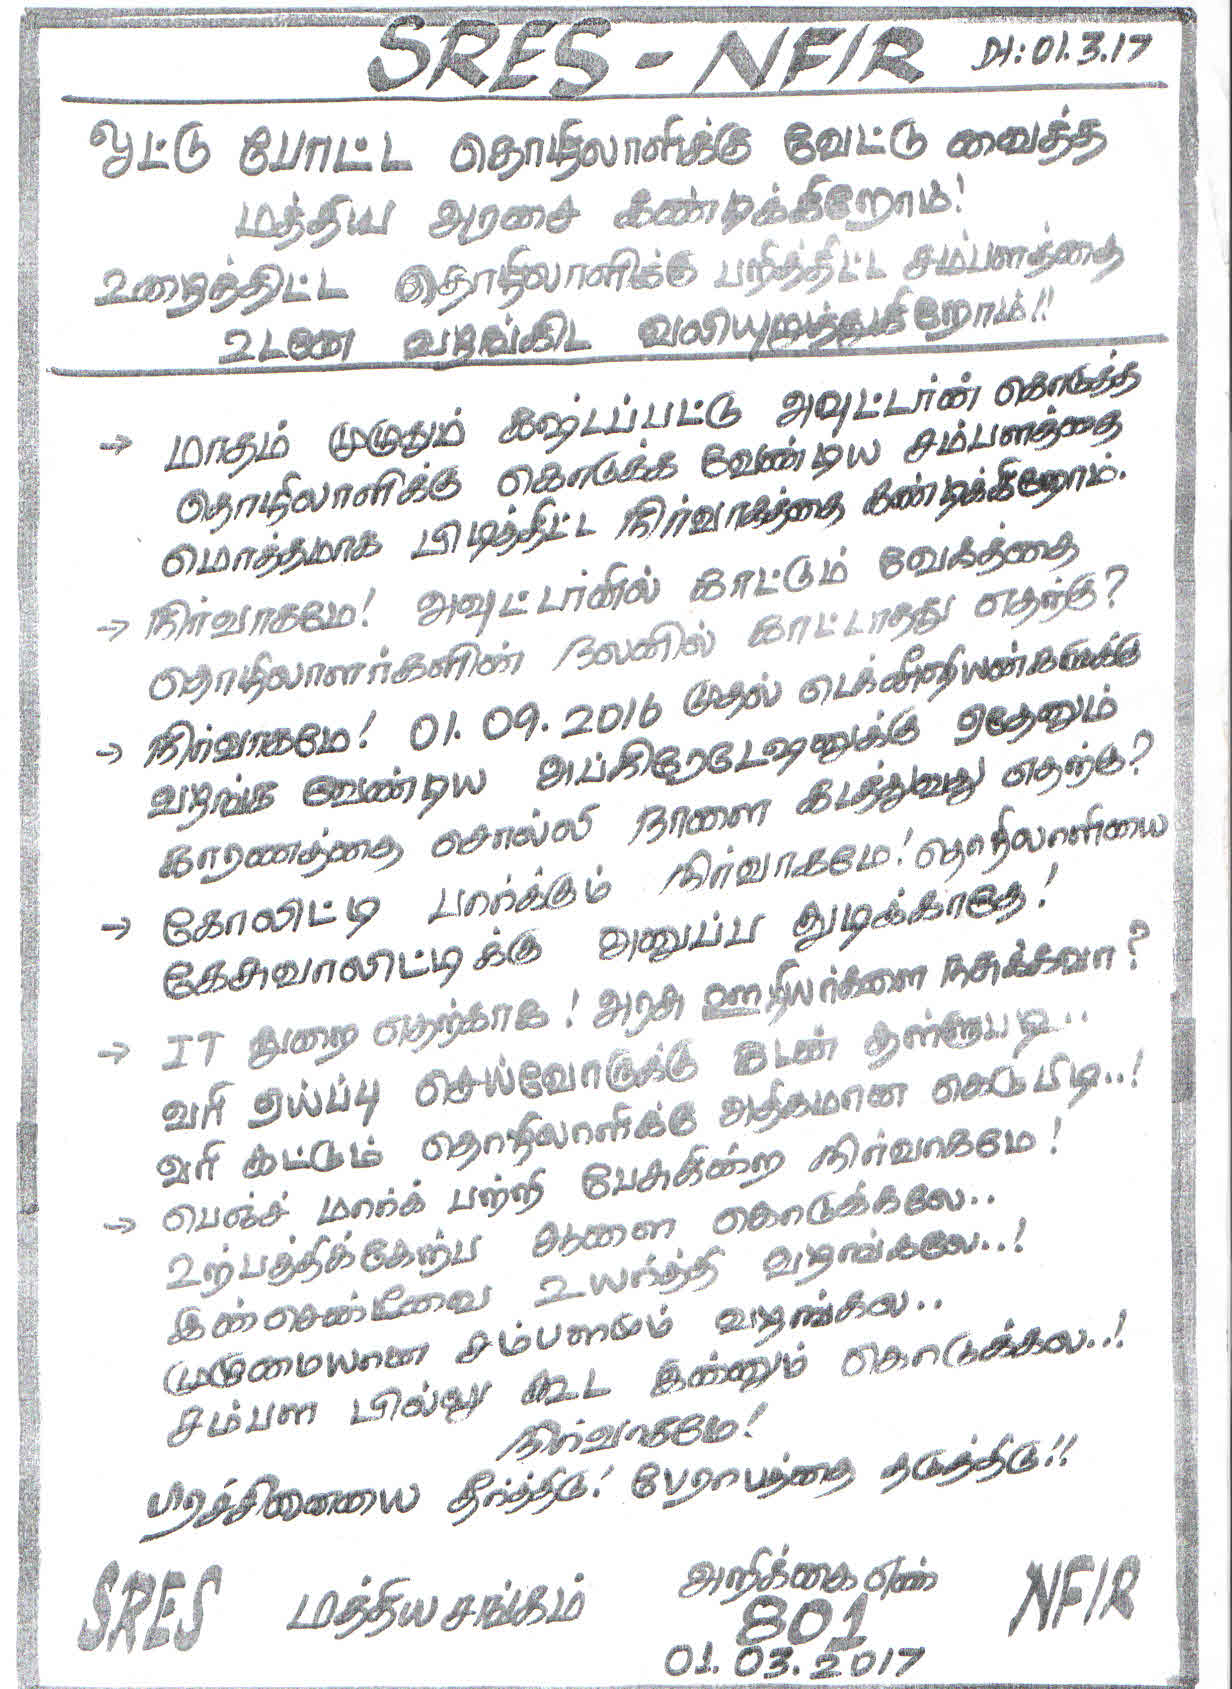 SRES - NFIR Dt: 01.3.17
ஓட்டு போட்ட தொழிலாளிக்கு வேட்டு வைத்த
மத்திய அரசை கண்டிக்கிறோம்!
உழைத்திட்ட தொழிலாளிக்கு பறித்திட்ட சம்பளத்தை
உடனே வழங்கிட வலியுறுத்துகிறோம்!!
→ மாதம் முழுதும் கஷ்டப்பட்டு அவுட்டர்ன் கொடுத்த
தொழிலாளிக்கு கொடுக்க வேண்டிய சம்பளத்தை
மொத்தமாக பிடித்திட்ட நிர்வாகத்தை கண்டிக்கிறோம்.
→ நிர்வாகமே! அவுட்டர்னில் காட்டும் வேகத்தை
தொழிலாளர்களின் நலனில் காட்டாதது எதற்கு?
→ நிர்வாகமே! 01.09.2016 முதல் டெக்னீசியன்களுக்கு
வழங்க வேண்டிய அப்கிரேடேஷனுக்கு ஏதேனும்
காரணத்தை சொல்லி நாளை கடத்துவது எதற்கு?
→ கோலிட்டி பார்க்கும் நிர்வாகமே! தொழிலாளியை
கேசுவாலிட்டிக்கு அனுப்ப துடிக்காதே!
→ IT துறை எதற்காக! அரசு ஊழியர்களை நசுக்கவா?
வரி ஏய்ப்பு செய்வோருக்கு கடன் தள்ளுபடி..
வரி கட்டும் தொழிலாளிக்கு அதிகமான கெடுபிடி..!
→ பெஞ்ச் மார்க் பற்றி பேசுகின்ற நிர்வாகமே!
உற்பத்திக்கேற்ப ஆளை கொடுக்கலே..
இன்சென்டீவை உயர்த்தி வழங்கலே..!
முழுமையான சம்பளமும் வழங்கல..
சம்பள பில்லு கூட இன்னும் கொடுக்கல..!
நிர்வாகமே!
பிரச்சினையை தீர்த்திடு! பேராபத்தை தடுத்திடு!!
SRES மத்திய சங்கம் அறிக்கை எண் NFIR
801
01.03.2017